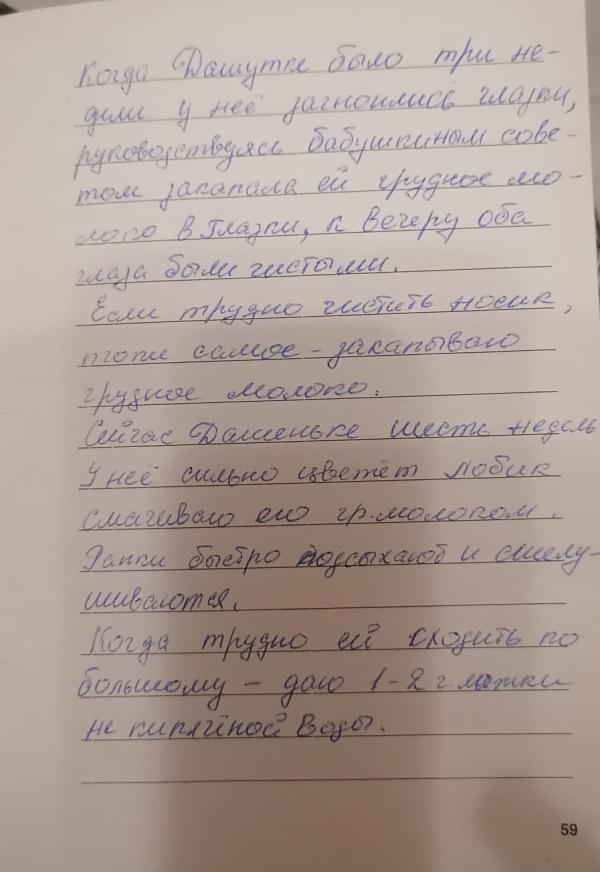 Когда Дашутке было три не-
дели у неё загноились глазки,
руководствуясь бабушкиным сове-
том закапала ей грудное мо-
локо в глазки, к вечеру оба
глаза были чистыми.
Если трудно чистить носик,
топи самое - закапываю
грудное молоко.
Сейчас Дашеньке шесть недель
У неё сильно цветёт лобик
смачиваю его гр.молоком.
Ранки быстро подсыхают и сшелу-
шиваются.
Когда трудно ей сходить по
большому - даю 1-2 ч ложки
не кипячёной воды.
59